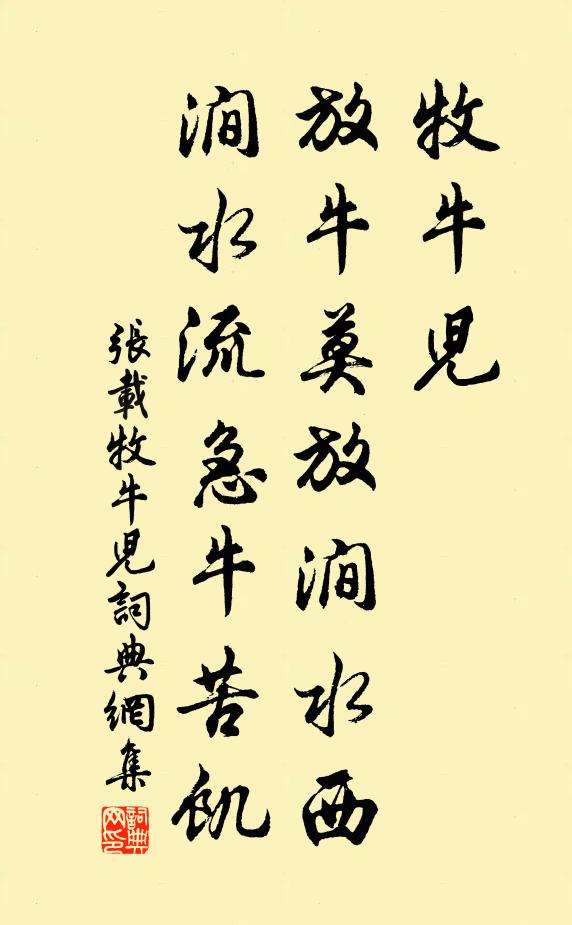 牧牛兒
放牛莫放澗水西
澗水流急牛苦飢
張載牧牛兒詞典網集
詞典網印